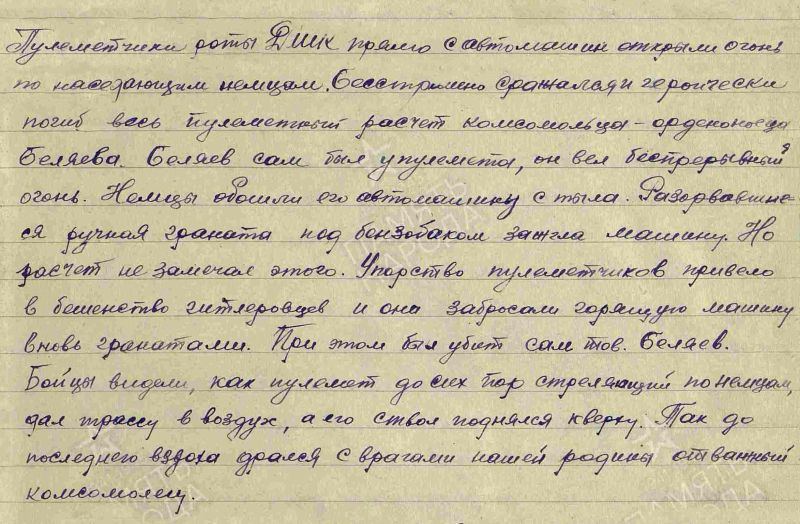 Пулеметчики роты ДШК прямо с автомашин открыли огонь
по наседающим немцам. Бесстрашно сражался и героически
погиб весь пулеметный расчет комсомольца-орденоносца
Беляева. Беляев сам был у пулемета, он вел беспрерывный
огонь. Немцы обошли его автомашину с тыла. Разорвавше-
ся ручная граната под бензобаком зажгла машину. Но
расчет не замечал этого. Упорство пулеметчиков привело
в бешенство гитлеровцев и они забросали горящую машину
вновь гранатами. При этом был убит сам тов. Беляев.
Бойцы видели, как пулемет до сих пор стреляющий по немцам,
дал трассу в воздух, а его ствол поднялся кверху. Так до
последнего вздоха дрался с врагами нашей родины отважный
комсомолец.